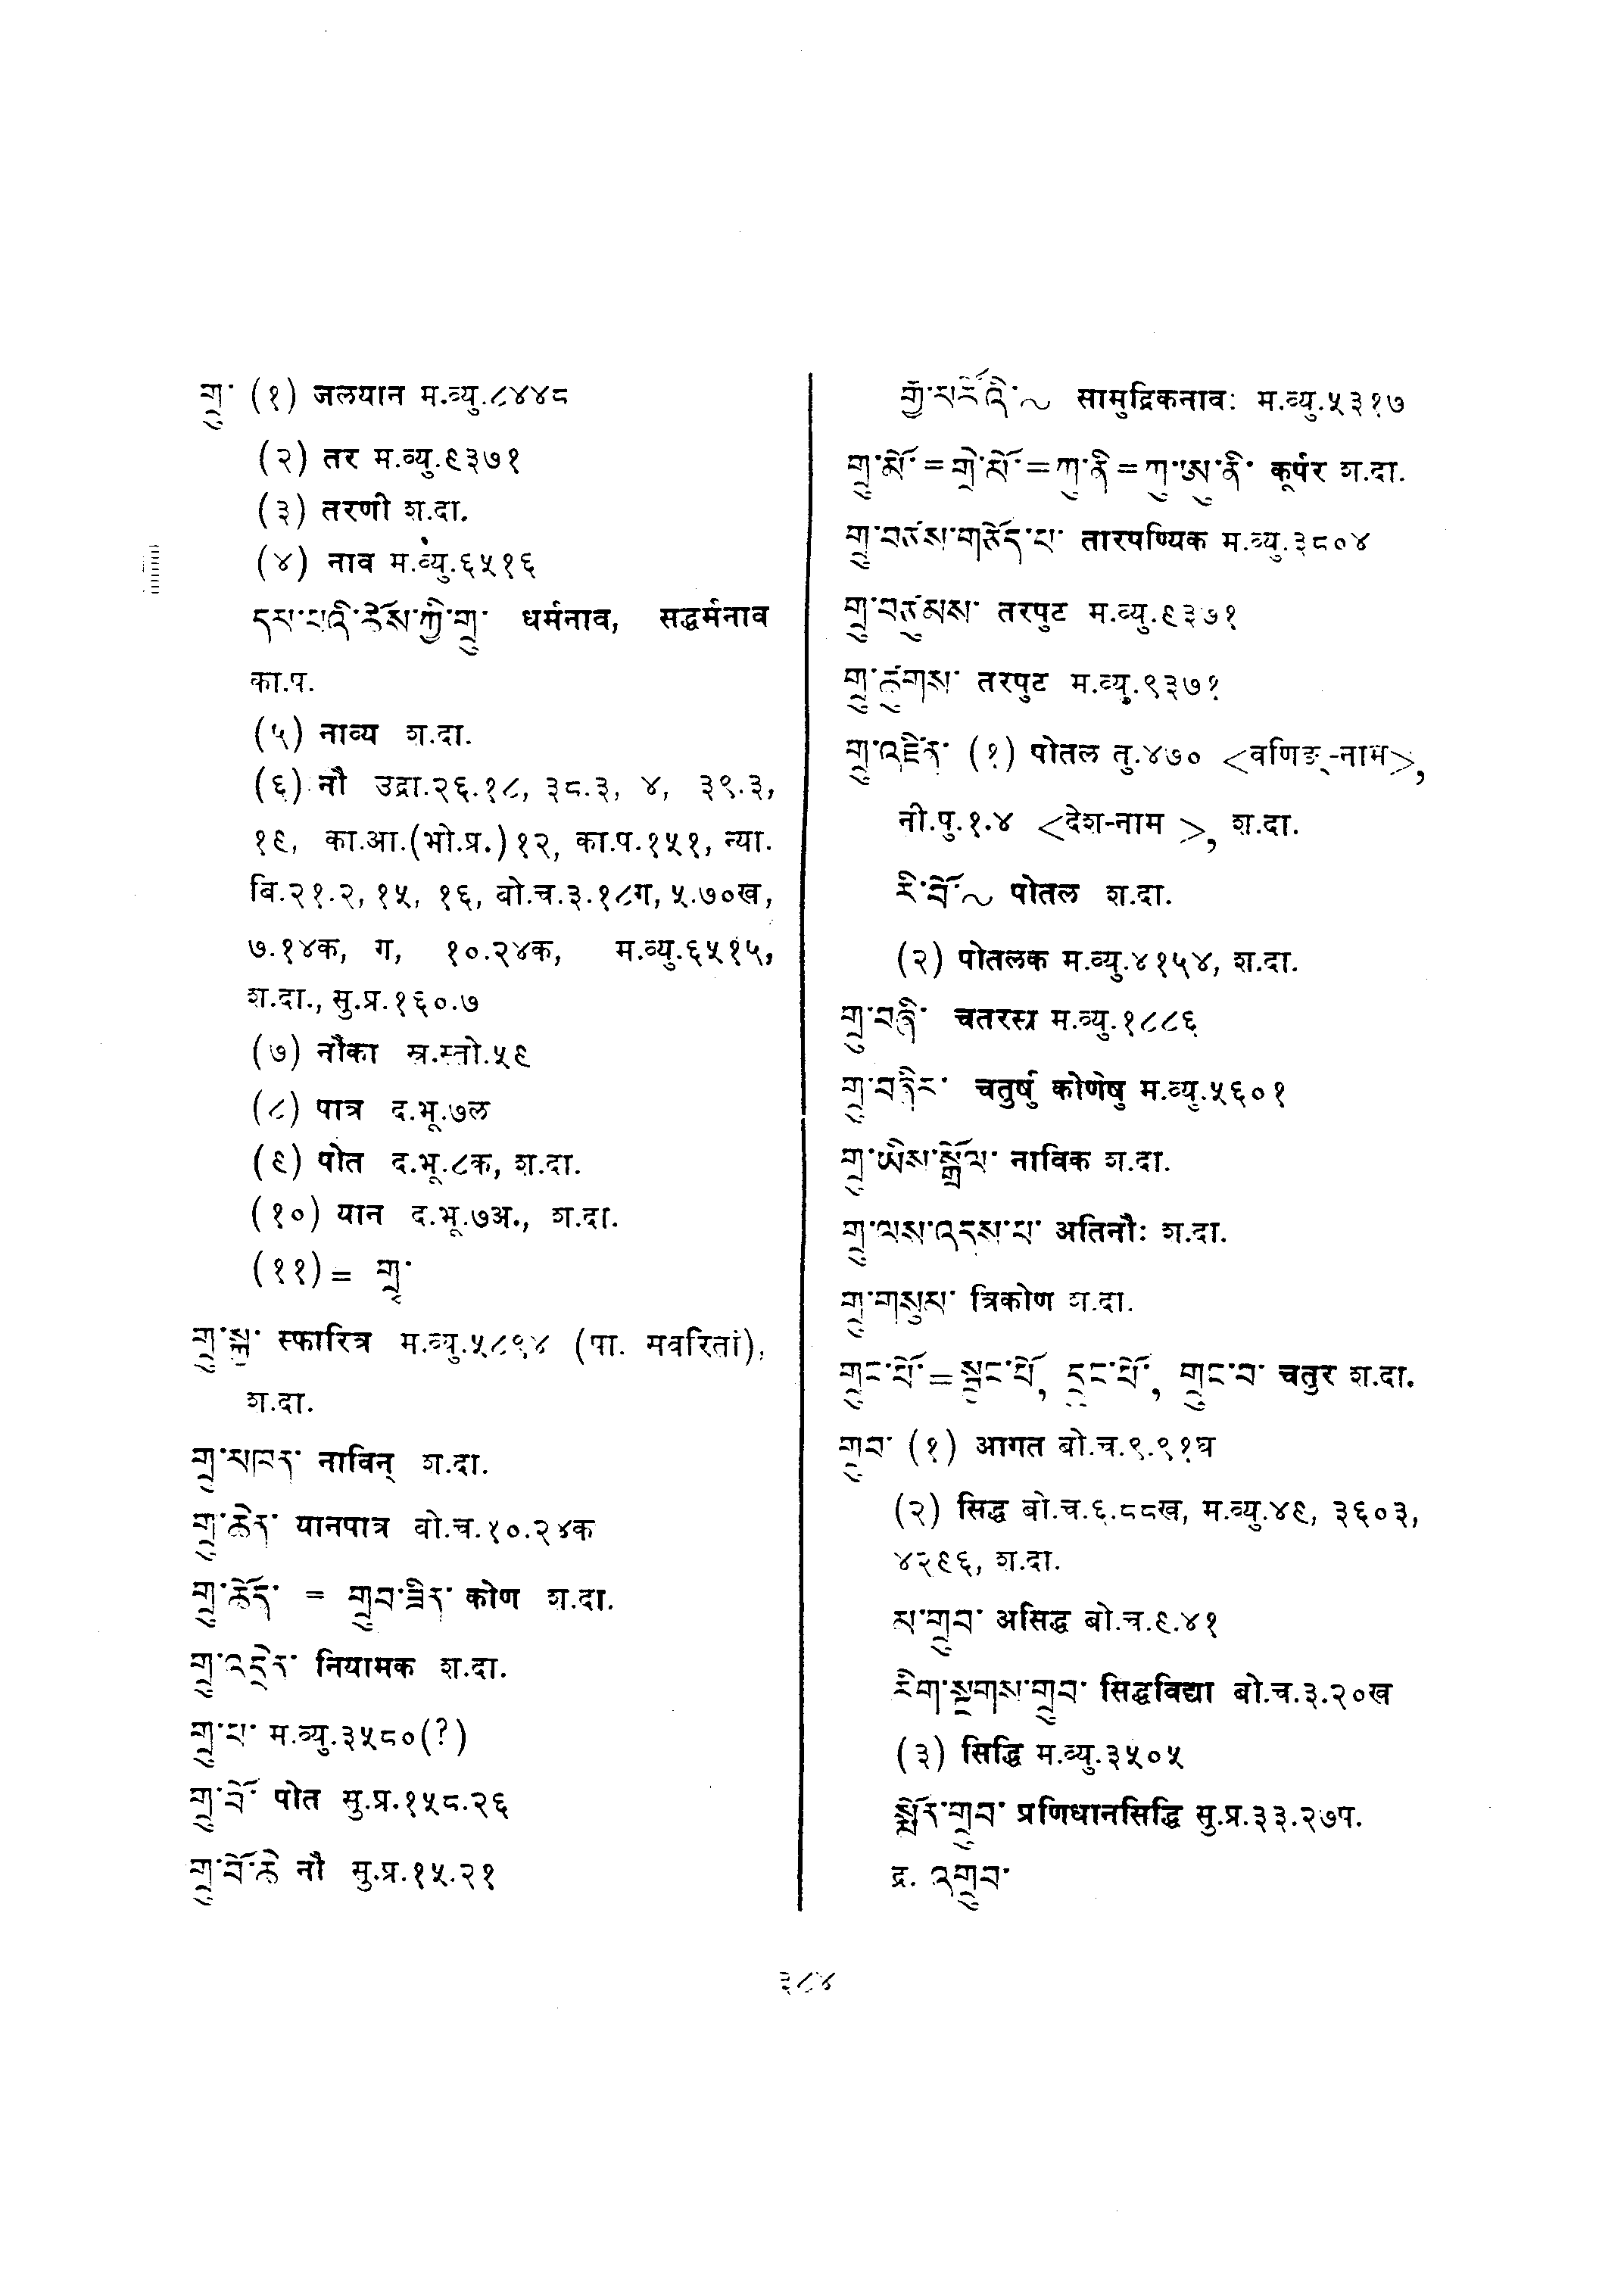 གྲུ་ (१) जलयान म.व्यु.८४४८
(२) तर म.व्यु.९३७१
(३) तरणी श.दा.
(४) नाव म.व्यु.६५१६
དམ་པའི་ཆོས་ཀྱི་གྲུ་ धर्मनाव, सद्धर्मनाव
का.प.
(५) नाव्य श.दा.
(६) नौ उद्रा.२६.१८, ३८.३, ४, ३९.३,
१९, का.आ.(भो.प्र.)१२, का.प.१५१, न्या.
बि.२१.२, १५, १६, बो.च.३.१८ग, ५.७०ख,
७.१४क, ग, १०.२४क, म.व्यु.६५१५,
श.दा., सु.प्र.१६०.७
(७) नौका स्र.स्तो.५९
(८) पात्र द.भू.७ल
(९) पोत द.भू.८क, श.दा.
(१०) यान द.भू.७अ., श.दा.
(११) = གྲྭ་
གྲུ་སྐྱ་ स्फारित्र म.व्यु.५८९४ (पा. मवरितां),
श.दा.
གྲུ་མཁན་ नाविन् श.दा.
གྲུ་ཆེན་ यानपात्र बो.च.१०.२४क
གྲུ་ཆོད་ = གྲུབ་ཟིན་ कोण श.दा.
གྲུ་འདྲེན་ नियामक श.दा.
གྲུ་པ་ म.व्यु.३५८०(?)
གྲུ་བོ་ पोत सु.प्र.१५८.२६
གྲུ་བོ་ཆེ नौ सु.प्र.१५.२१
རྒྱ་མཚོའི་~ सामुद्रिकनावः म.व्यु.५३१७
གྲུ་མོ་=གྲེ་མོ་=ཀུ་ནི=ཀུ་ཨུ་ནི་ कूर्पर श.दा.
གྲུ་བཙས་གཅོད་པ་ तारपण्यिक म.व्यु.३८०४
གྲུ་བཙུམས་ तरपुट म.व्यु.९३७१
གྲུ་ཚུགས་ तरपुट म.व्यु.९३७१
གྲུ་འཛིན་ (१) पोतल तु.४७० <वणिङ्-नाम>,
नी.पु.१.४ <देश-नाम >, श.दा.
རི་བོ་~ पोतल श.दा.
(२) पोतलक म.व्यु.४१५४, श.दा.
གྲུ་བཞི་ चतरस्र म.व्यु.१८८६
གྲུ་བཞིར་ चतुर्षु कोणेषु म.व्यु.५६०१
གྲུ་ཡིས་སྒྲོལ་ नाविक श.दा.
གྲུ་ལས་འདས་པ་ अतिनौः श.दा.
གྲུ་གསུམ་ त्रिकोण श.दा.
གྲུང་པོ་=སྒྲུང་པོ, དྲུང་པོ་, གྲུང་བ་ चतुर श.दा.
གྲུབ་ (१) आगत बो.च.९.९१घ
(२) सिद्ध बो.च.६.८८ख, म.व्यु.४९, ३६०३,
४२९६, श.दा.
མ་གྲུབ་ असिद्ध बो.च.९.४१
རིག་སྔགས་གྲུབ་ सिद्धविद्या बो.च.३.२०ख
(३) सिद्धि म.व्यु.३५०५
སྨོན་གྲུབ་ प्रणिधानसिद्धि सु.प्र.३३.२७प.
द्र. འགྲུབ་
३८४